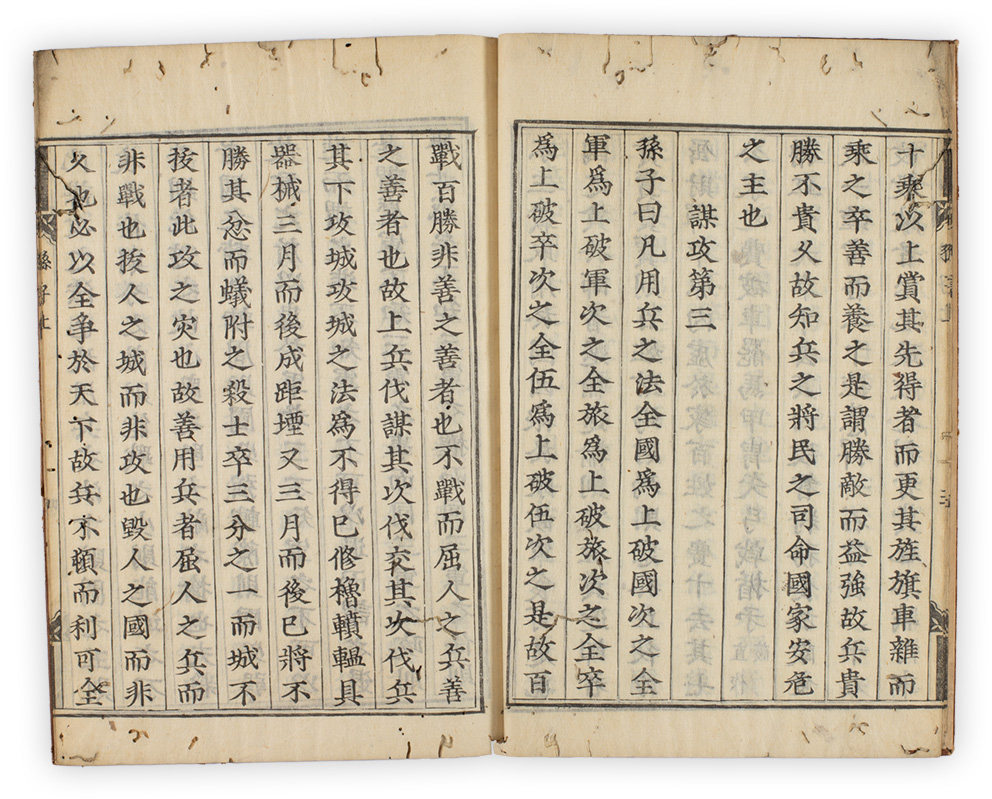 十乘以上賞其先得者而更其旌旗車雜而
乘之卒善而養之是謂勝敵而益強故兵貴
勝不貴久故知兵之將民之司命國家安危
之主也
謀攻第三
孫子曰凡用兵之法全國爲上破國次之全
軍爲上破軍次之全旅爲上破旅次之全卒
爲上破卒次之全伍爲上破伍次之是故百
戰百勝非善之善者也不戰而屈人之兵善
之善者也故上兵伐謀其次伐交其次伐兵
其下攻城攻城之法爲不得已修櫓轒轀具
器械三月而後成距堙又三月而後已將不
勝其忿而蟻附之殺士卒三分之一而城不
拔者此攻之灾也故善用兵者屈人之兵而
非戰也拔人之城而非攻也毀人之國而非
久也必以全争於天下故兵不頓而利可全
孫子上